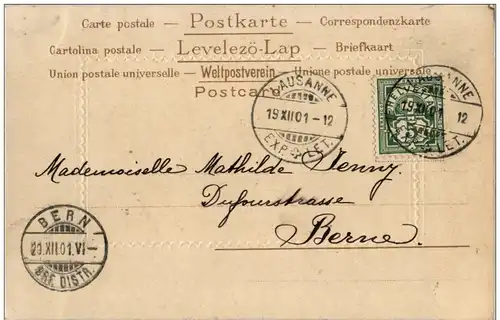 Carte postale – Postkarte – Correspondenzkarte
Cartolina postale – Levelezö-Lap – Briefkaart
Union postale universelle – Weltpostverein – Unione postale universale
Postcard
LAUSANNE
19 XII 01 – 12
EXP. LET.
LAUSANNE
19 XII 01 – 12
EXP. LET.
HELVETIA
5
Mademoiselle Mathilde Jenny
Dufourstrasse
Berne.
BERN
20.XII.01.VI–
BRF. DISTR.